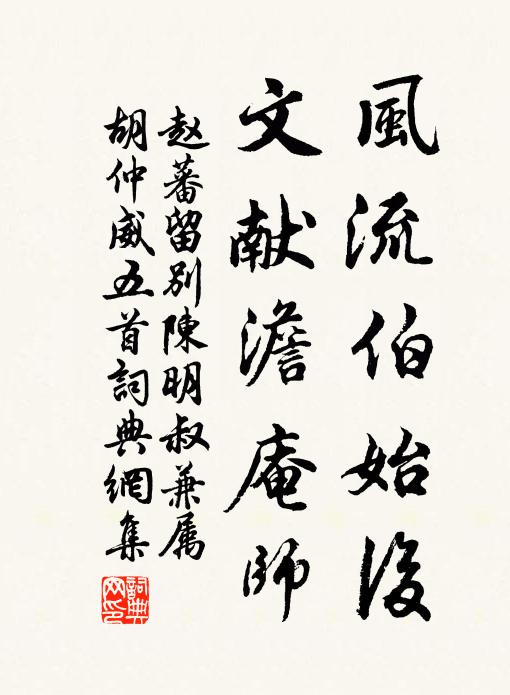 風流伯始後
文献澹庵師
赵蕃留别陳明叔兼属
胡仲威五首詞典網集
詞典
网印